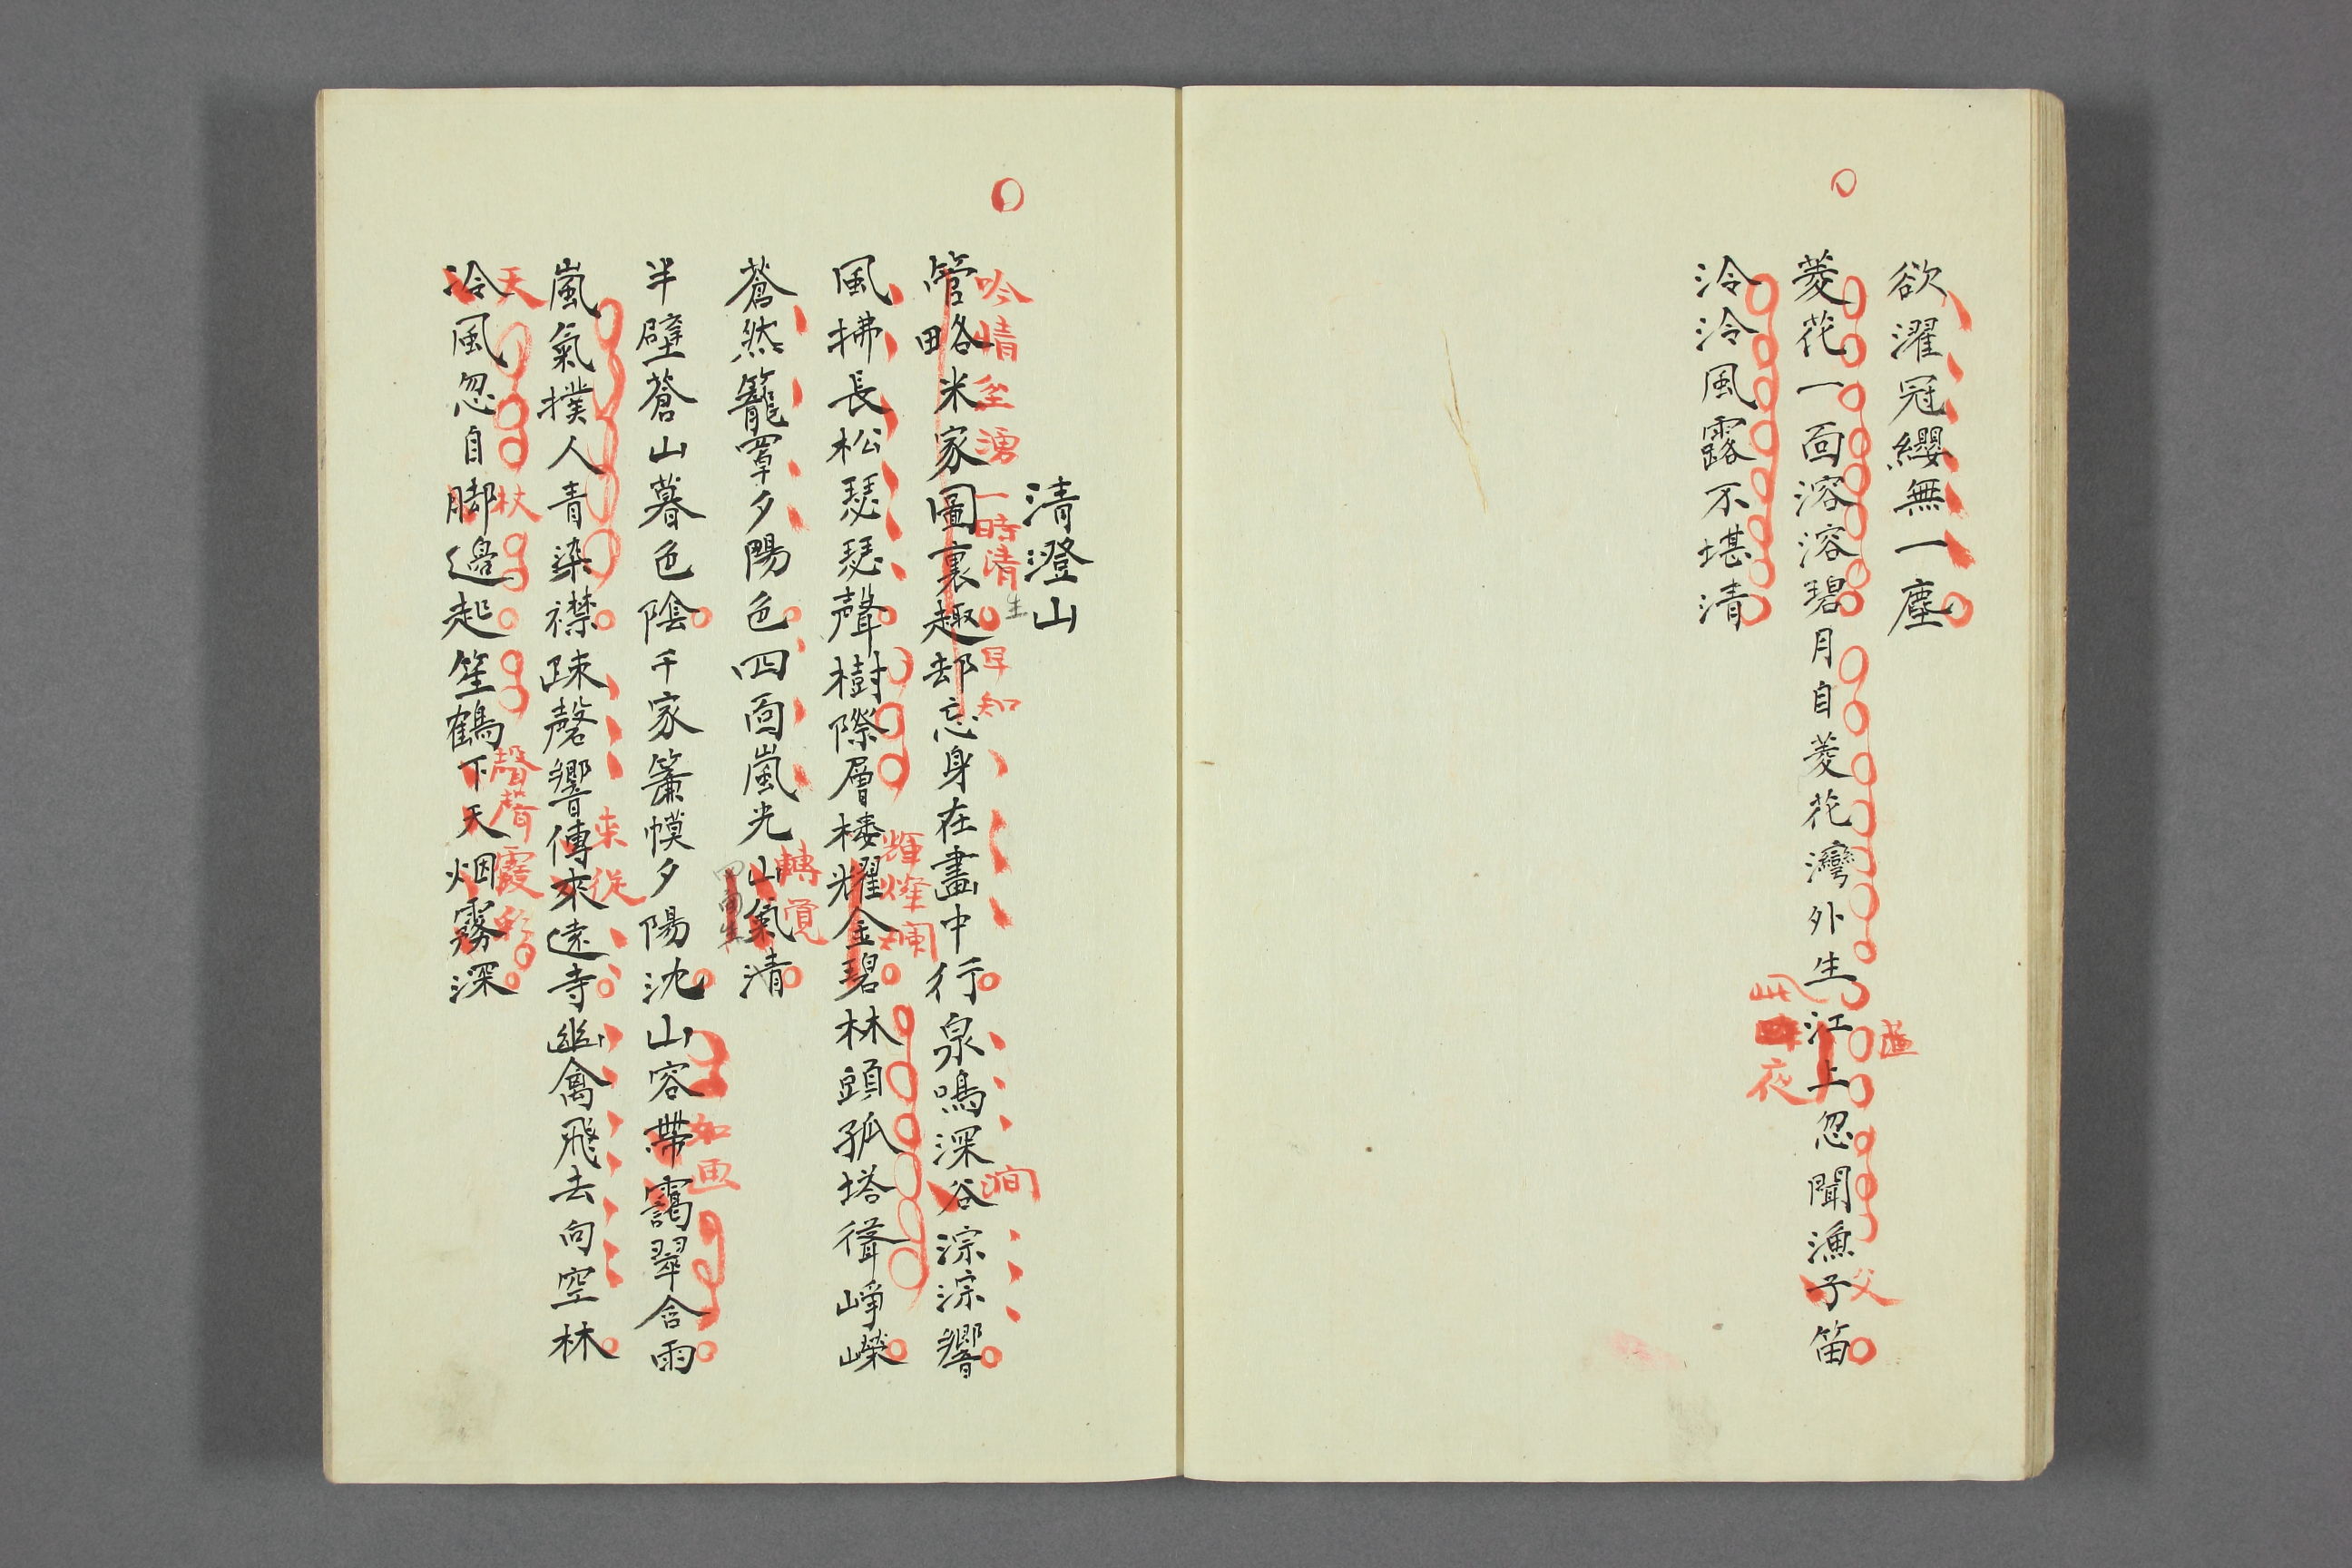 欲濯冠纓無一塵
菱花一面溶溶碧月自菱花灣外生江上忽聞漁子笛
此夜
父
泠泠風露不堪清
清澄山
吟情坌湧一時清
生
早知
澗
管略米家圖裏趣却忘身在畫中行泉鳴深谷淙淙響
輝燦爛
風拂長松瑟瑟聲樹際層楼耀金碧林頭孤塔聳崢嶸
轉覚
蒼然籠罩夕陽色四面嵐光山氣清
四面生
如画
半壁蒼山暮色陰千家簾幙夕陽沈山容帶靄翠含雨
来従
嵐氣撲人青染襟踈磬響傳來遠寺幽禽飛去向空林
天
杖
聲聲霞彩
泠風忽自脚邊起笙鶴下天烟霧深